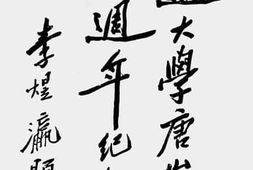 大學唐山
週年纪
李煜瀛題